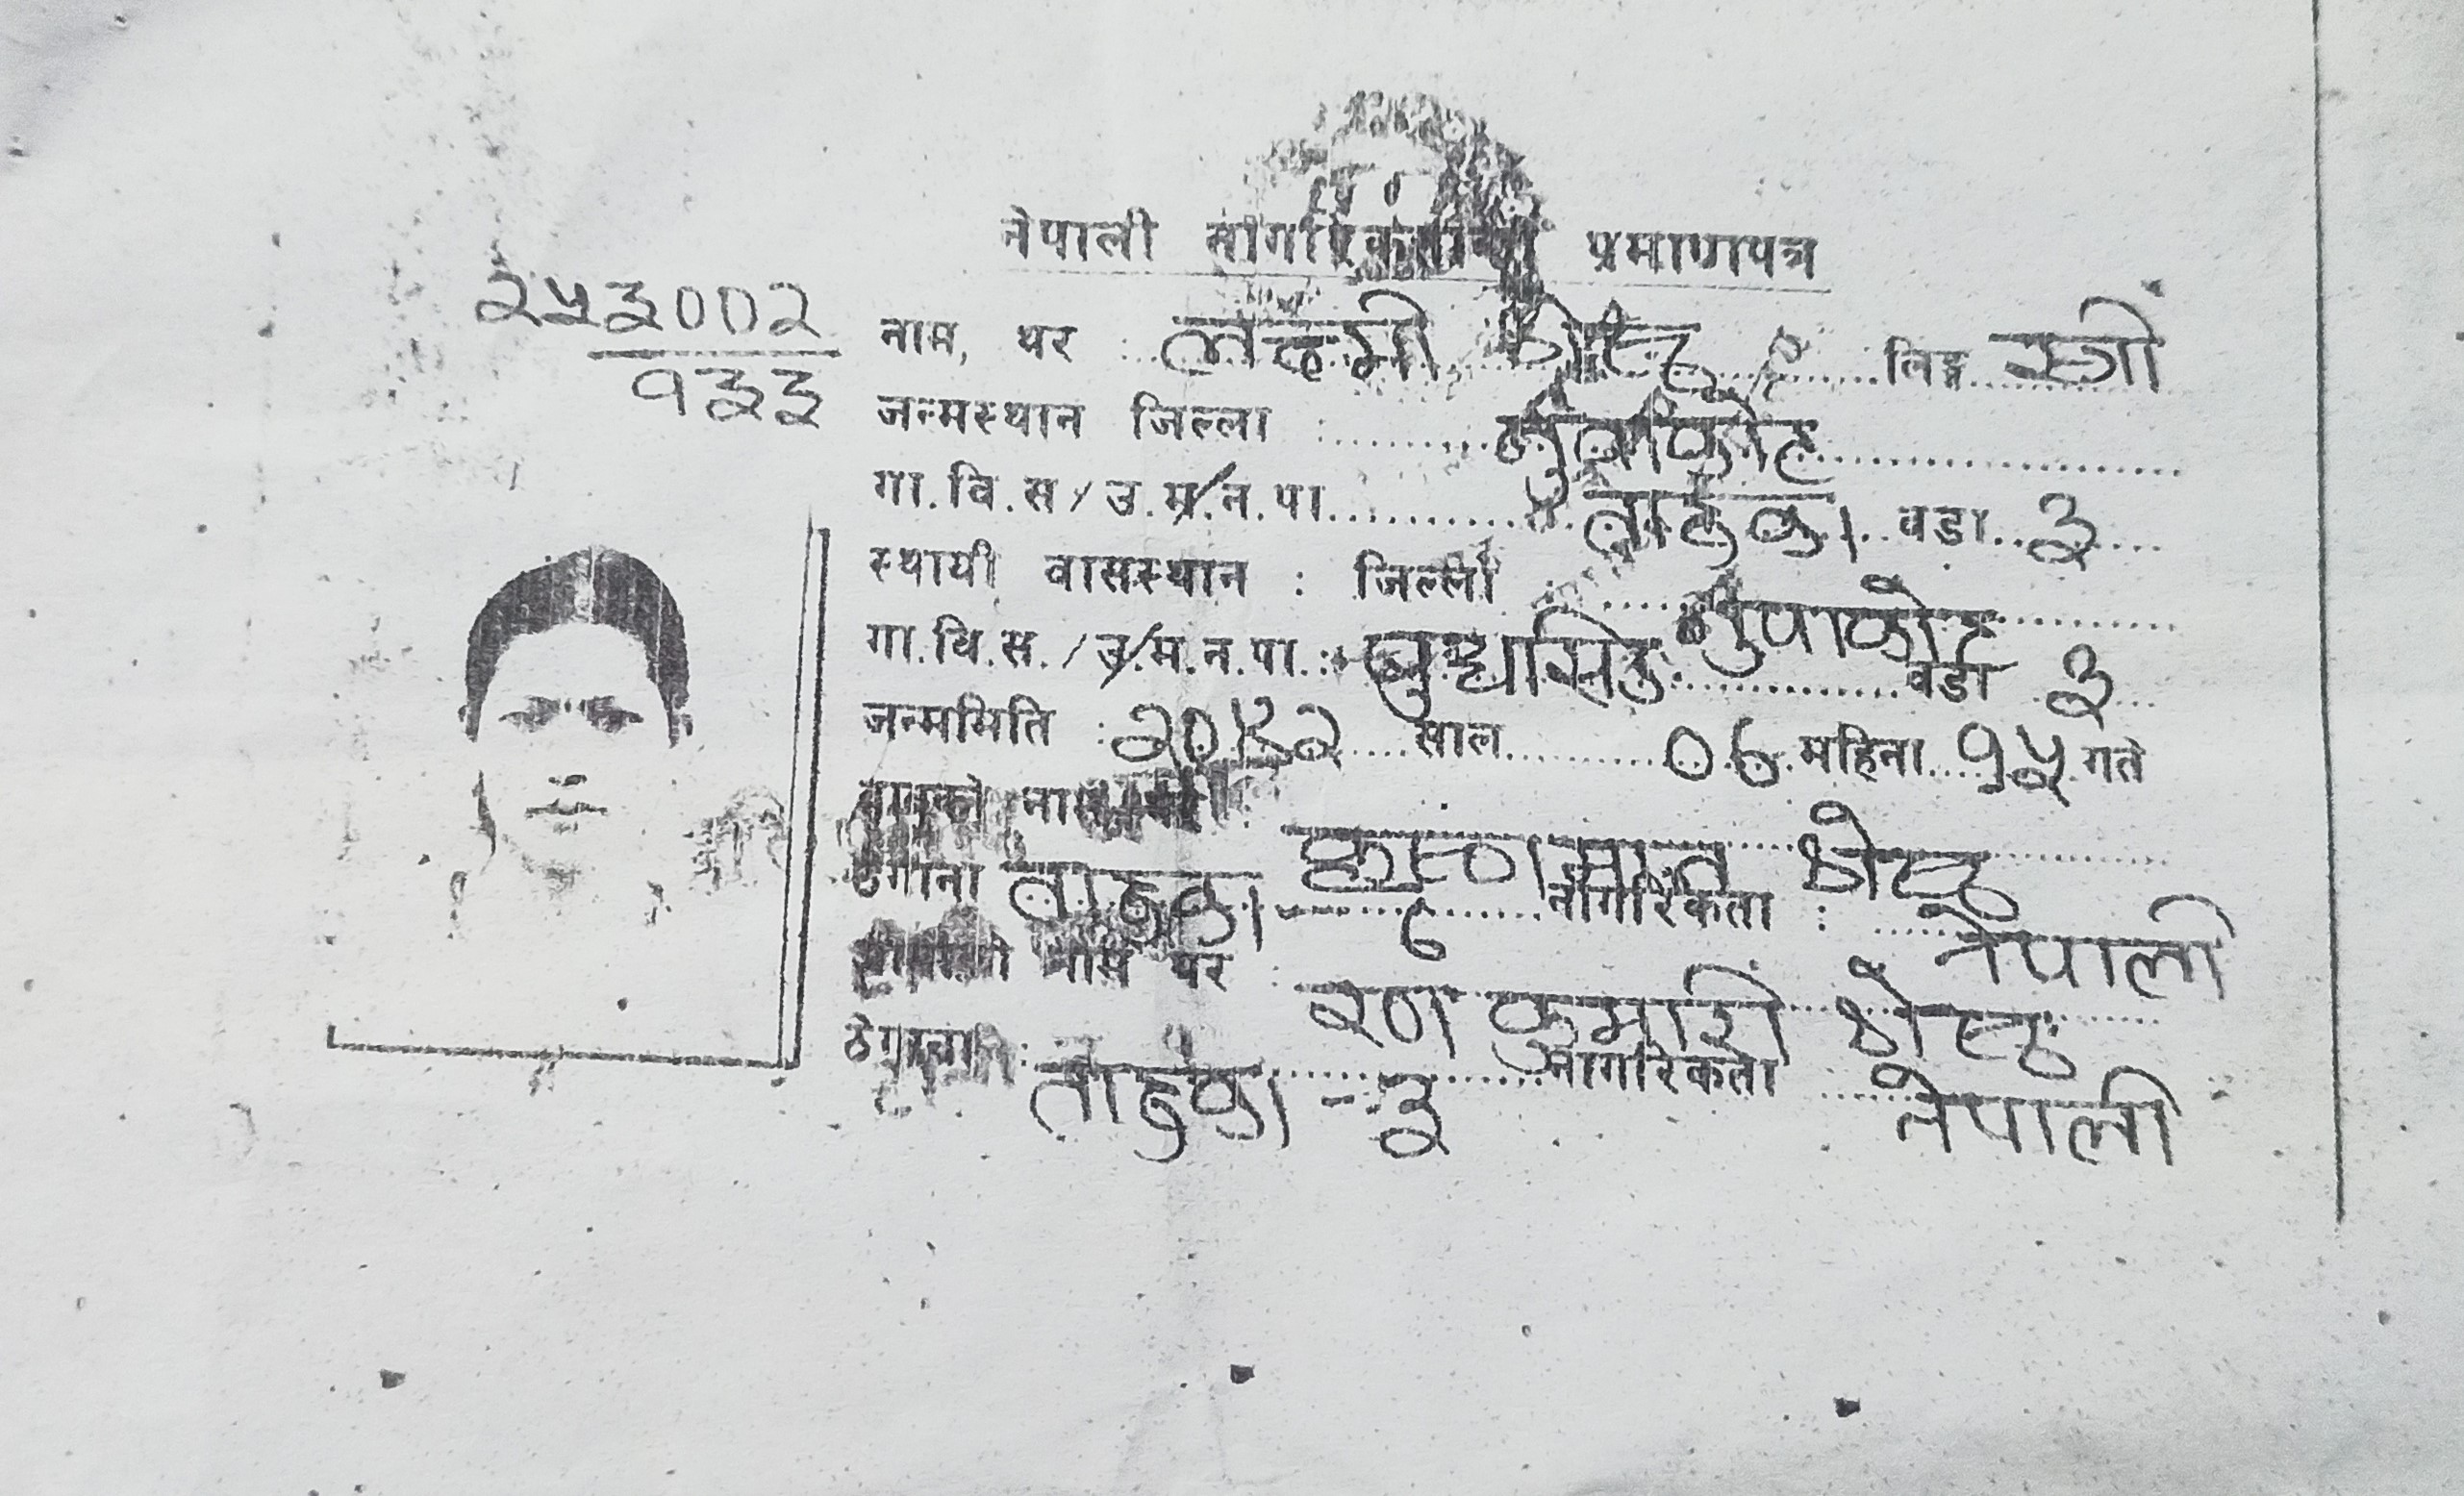 नेपाली नागरिकताको प्रमाणपत्र
२५३००२
१३३
नाम, थर : लक्ष्मी श्रेष्ठ लिङ्ग स्त्री
जन्मस्थान जिल्ला : नुवाकोट
गा.वि.स/उ.म.न.पा. वडा ३
स्थायी वासस्थान : जिल्ला : नुवाकोट
गा.वि.स./उ.म.न.पा.: वडा ३
जन्ममिति : साल ०६ महिना १५ गते
बाबुको नाम थर :
श्रेष्ठ
ठेगाना नागरिकता : नेपाली
नाम थर : रण कुमारी श्रेष्ठ
ठेगाना : - ३ नागरिकता नेपाली